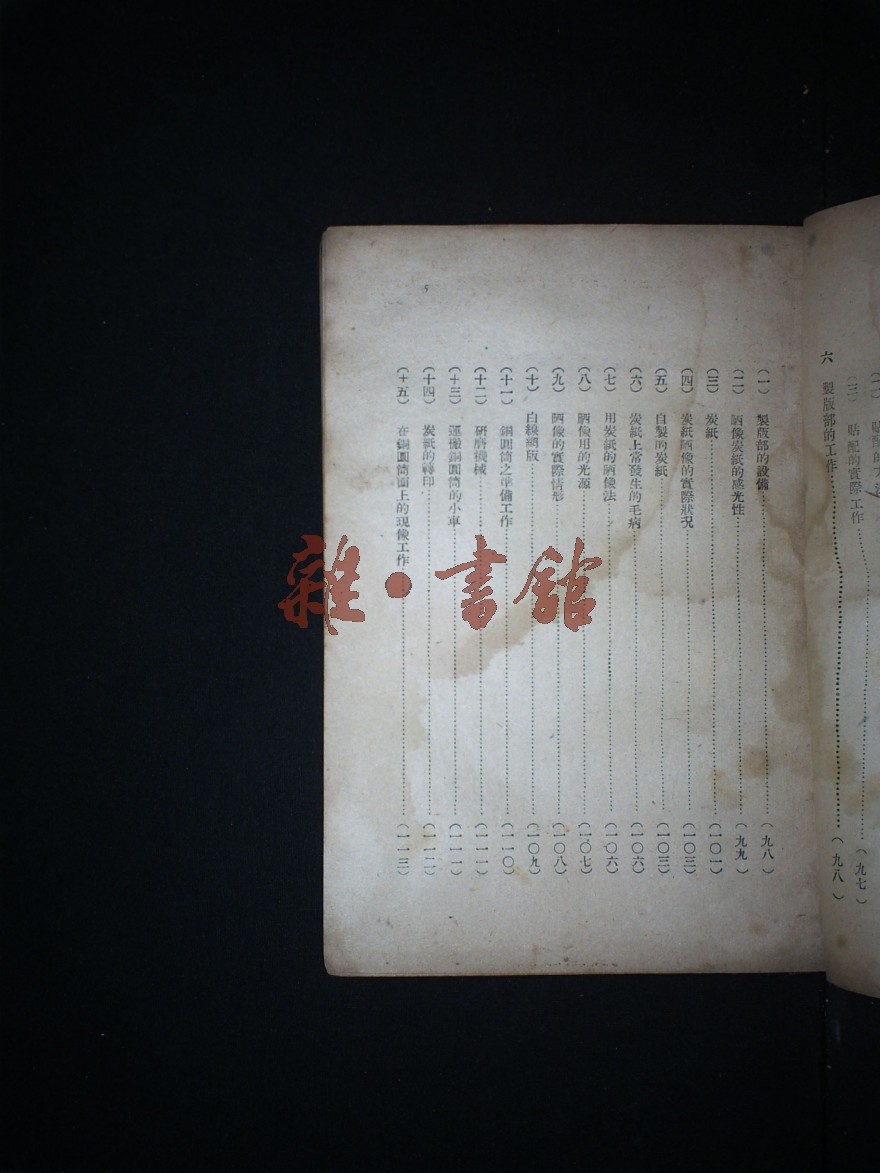 貼配的
(三) 貼配的實際工作……(九七)
六 製版部的工作……(九八)
(一) 製版部的設備……(九八)
(二) 晒像炭紙的感光性……(九九)
(三) 炭紙……(一〇一)
(四) 炭紙晒像的實際狀況……(一〇三)
(五) 自製的炭紙……(一〇三)
(六) 炭紙上常發生的毛病……(一〇六)
(七) 用炭紙的晒像法……(一〇六)
(八) 晒像用的光源……(一〇七)
(九) 晒像的實際情形……(一〇八)
(十) 白線網版……(一〇九)
(十一) 銅圓筒之準備工作……(一一〇)
(十二) 研磨機械……(一一一)
(十三) 運搬銅圓筒的小車……(一一一)
(十四) 炭紙的轉印……(一一二)
(十五) 在銅圓筒面上的現像工作……(一一三)
5
雜·書館